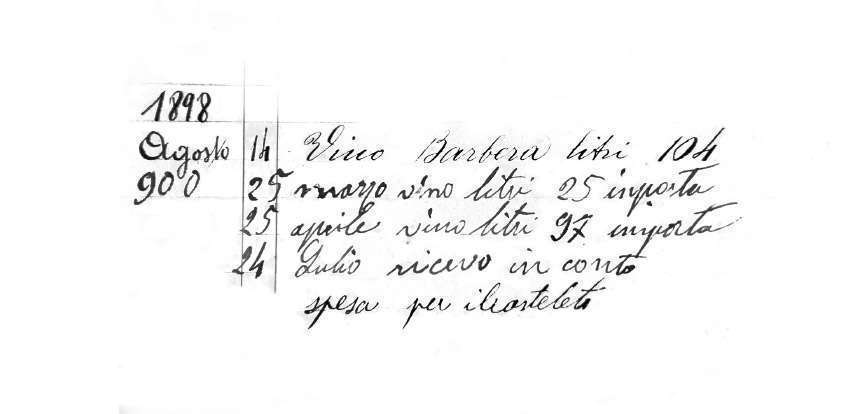 1898
Agosto 14 Vino Barbera litri 104
900 25 marzo vino litri 25 inporta
25 aprile vino litri 97 inporta
24 Lulio ricevo in conto
spesa per il casteleto